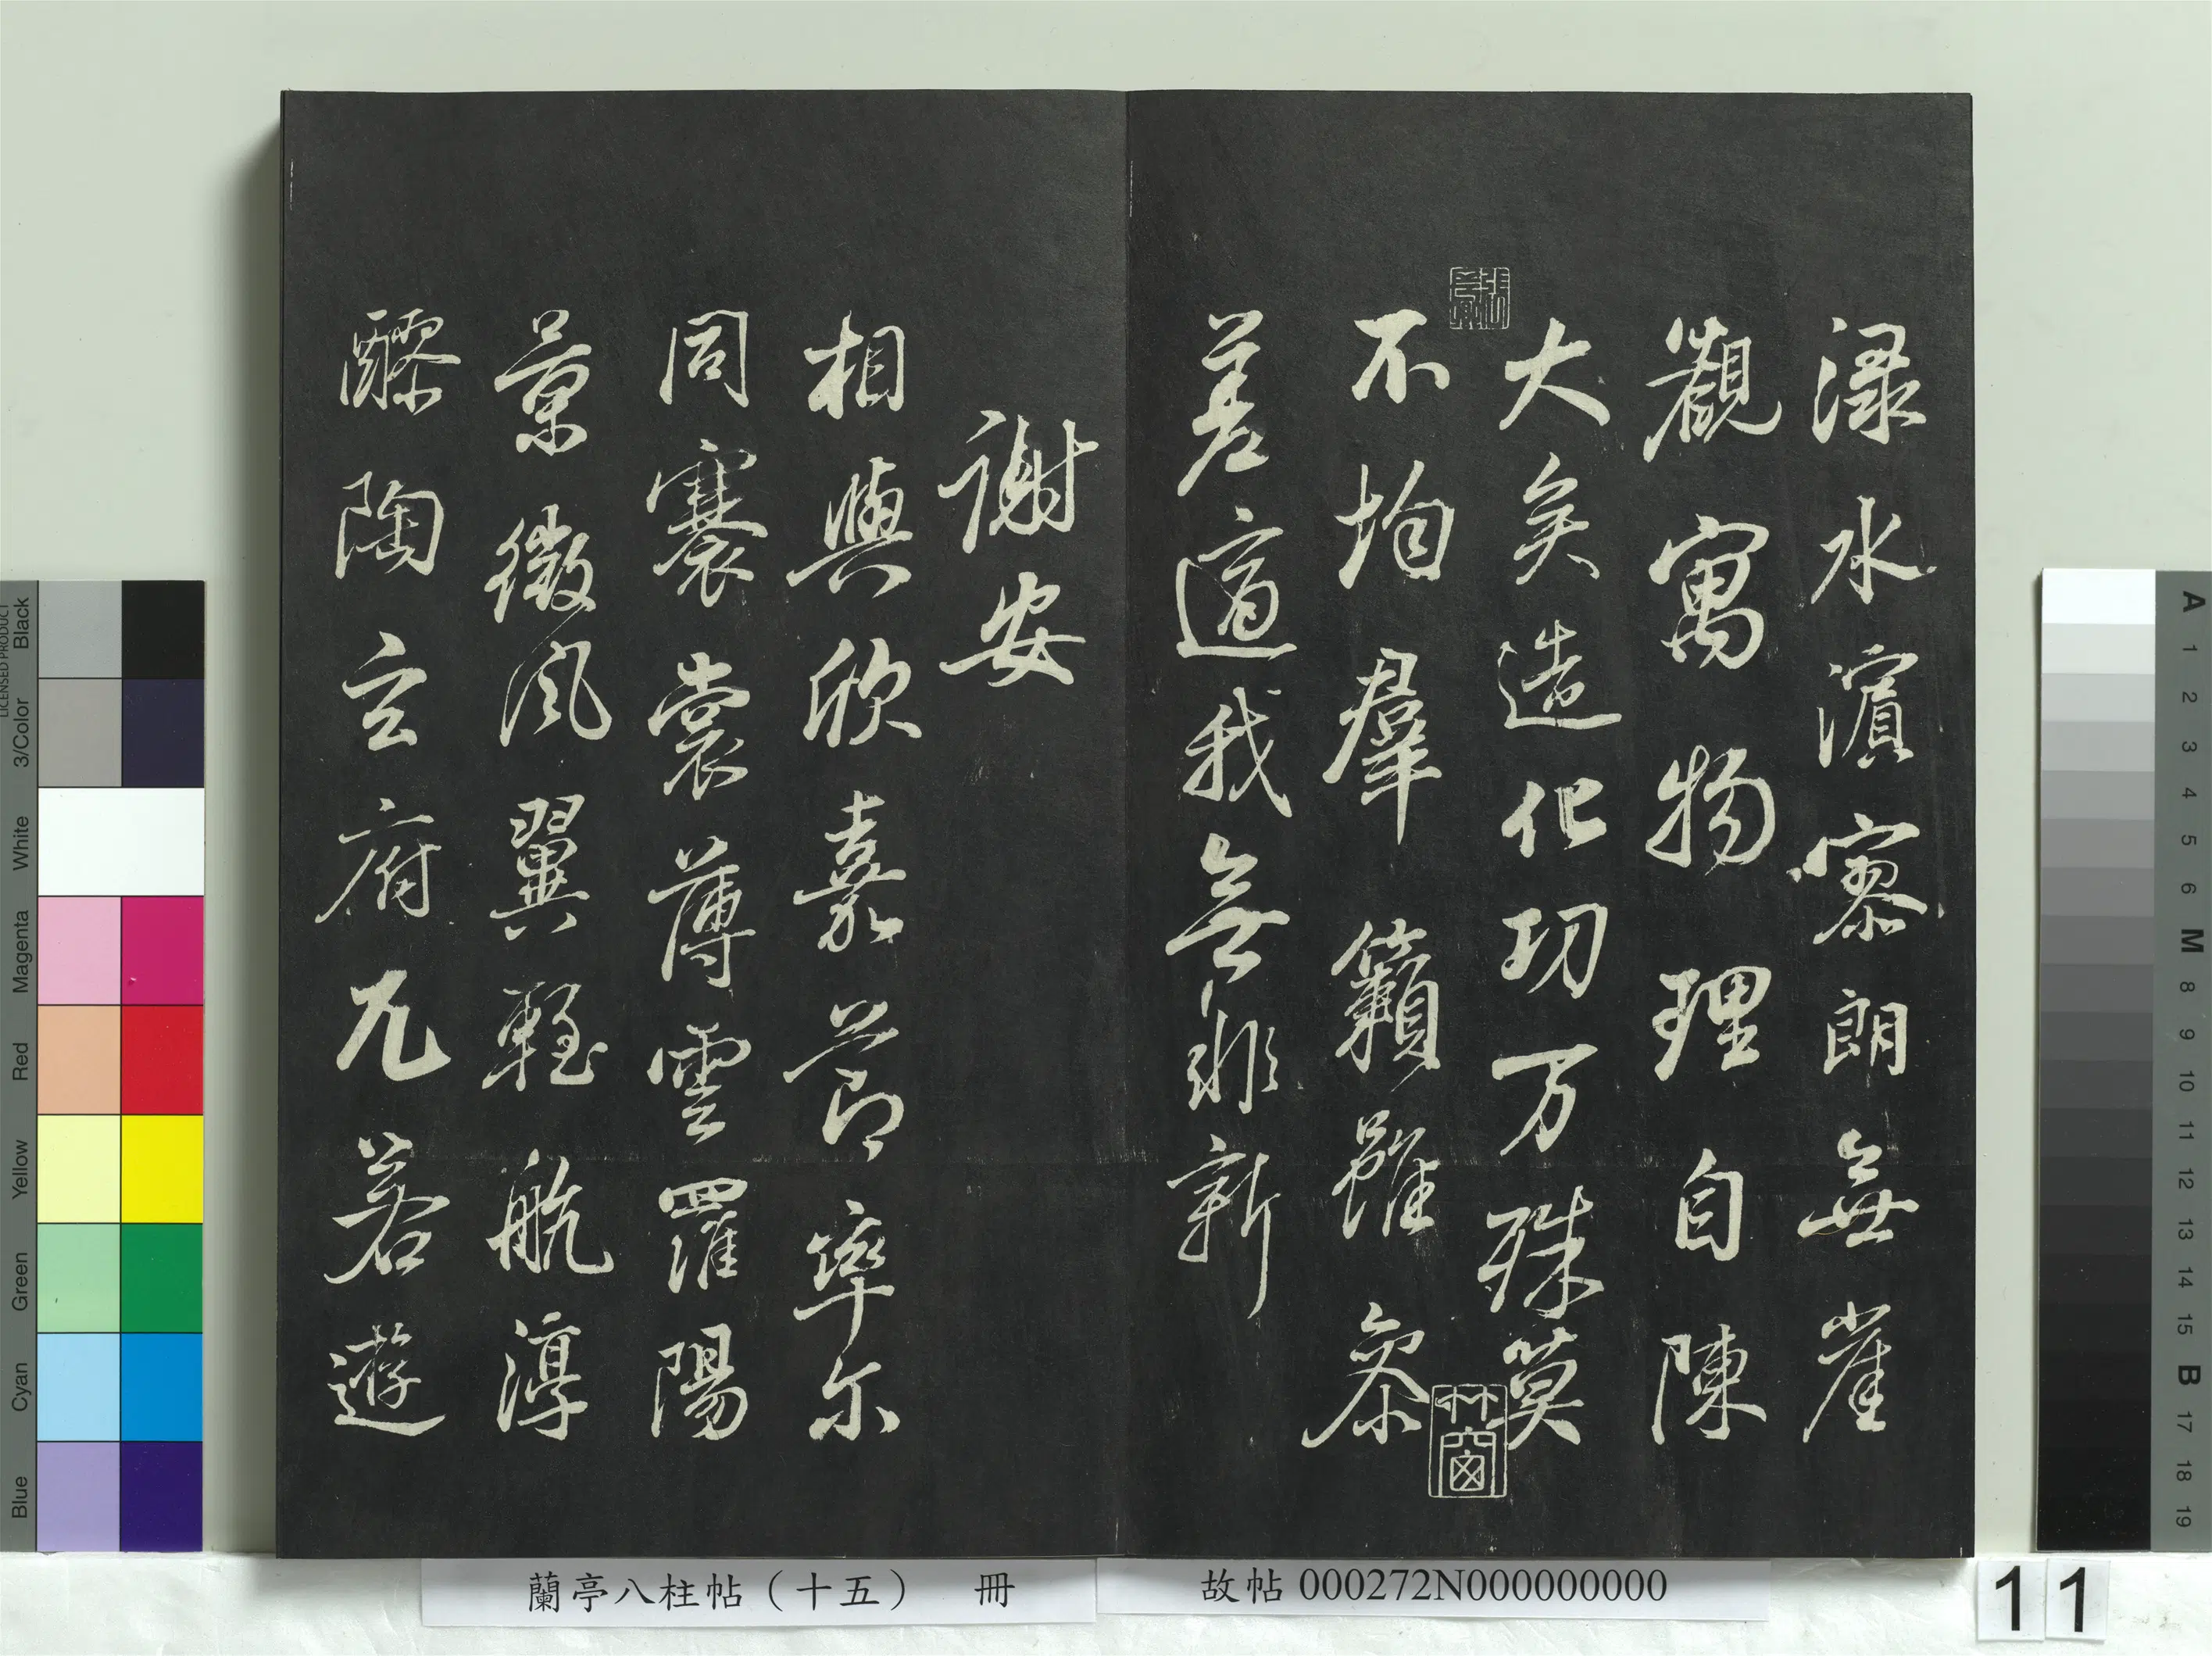 渌水濱寥朗無崖
觀寓物理自陳
大矣造化功万殊莫
不均羣籟雖參
差適我無非新
謝安
相與欣嘉節率尔
同褰裳薄雲羅陽
景微風翼輕航淳
醪陶玄府兀若遊
竹窗
蘭亭八柱帖（十五） 冊
故帖 000272N000000000
11
Black
3/Color
White
Magenta
Red
Yellow
Green
Cyan
Blue
LICENSED PRODUCT
A
1
2
3
4
5
6
M
8
9
10
11
12
13
14
15
B
17
18
19